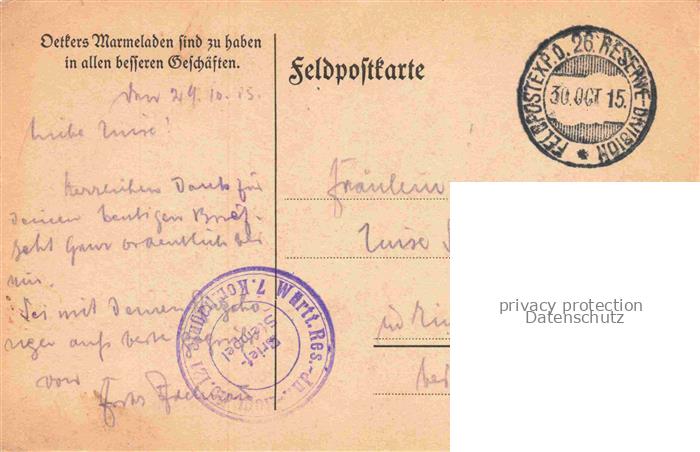 Oetkers Marmeladen sind zu haben
in allen besseren Geschäften.
Feldpostkarte
FELDPOSTEXP. D. 26. RESERVE-DIVISION
30. OCT 15.
29.10.15.
Liebe Luise!
Herzlichen Dank für
Deinen heutigen Brief.
geht ganz ordentlich bei
mir.
Sei mit Deinen
aufs beste
von
Fräulein
Luise
in
Württ. Res.
7. Komp
121
Brief-
Stempel
privacy protection
Datenschutz